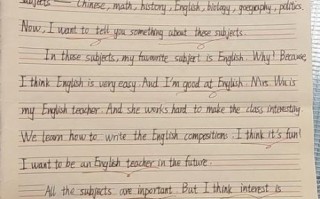 subjects — Chinese, math, history, English, biology, geography, politics.
Now, I want to tell you something about these subjects.
In these subjects, my favourite subject is English. Why? Because
I think English is very easy. And I'm good at English. Mrs. Wu is
my English teacher. And she works hard to make the class interesting.
We learn how to write the English compositions. I think it's fun!
I want to be an English teacher in the future.
All the subjects are important. But I think interest is